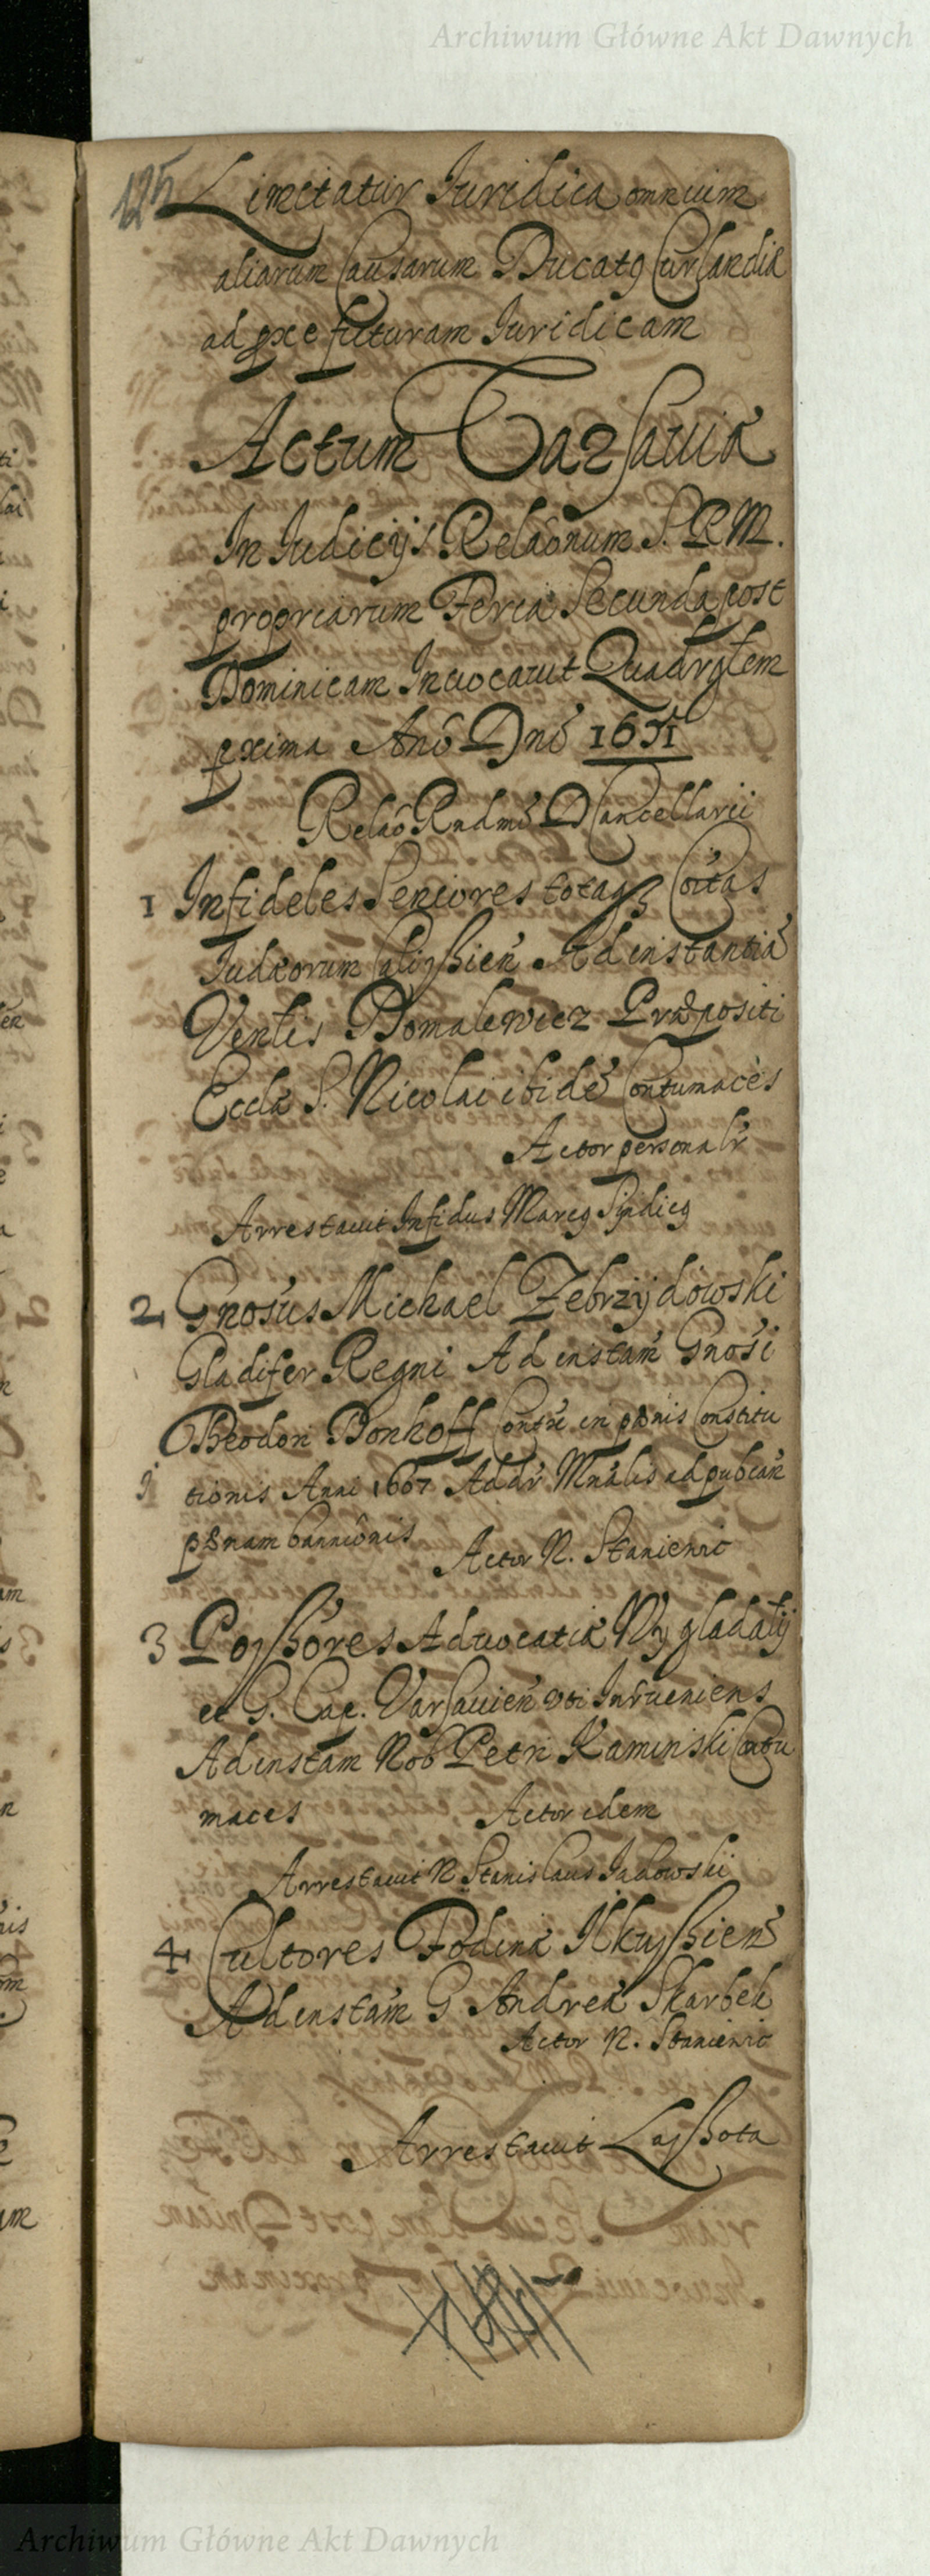 Archiwum Główne Akt Dawnych
125
Limitatur Juridica omnium
aliarum Causarum Ducatq Curlandiæ
ad pxe futuram Juridicam
Actum Varsaviæ
In Judicijs Relaonum S. R M.
propriarum Feria Secunda post
Dominicam Invocavit
pxima Ano Dni 1651
Relao Rndmi D Cancellarii
1 Infideles Seniores totaqз Coitas
Judæorum Ad instantia
Venlis Domalewicz Præpositi
Eccla S. Nicolai ibide Contumaces
Actor personalr
Arrestavit Infidus Marcq Sÿndicq
2 Gnosus Michael Zebrzÿdowski
Gladifer Regni Ad instam Gnosi
Theodori Donhoff in Constitu
tionis Anni 1607 ad
bannionis Actor N.
3 Advocatiæ
et G. Cap. Varsavien
Ad instam Nob Petri Kaminski Contu
maces Actor idem
Arrestavit N Stanislaus
4 Cultores Fodinæ Ilkussien
Ad instam G Andreæ Skarbek
Actor N.
Arrestavit Lassota
Archiwum Główne Akt Dawnych